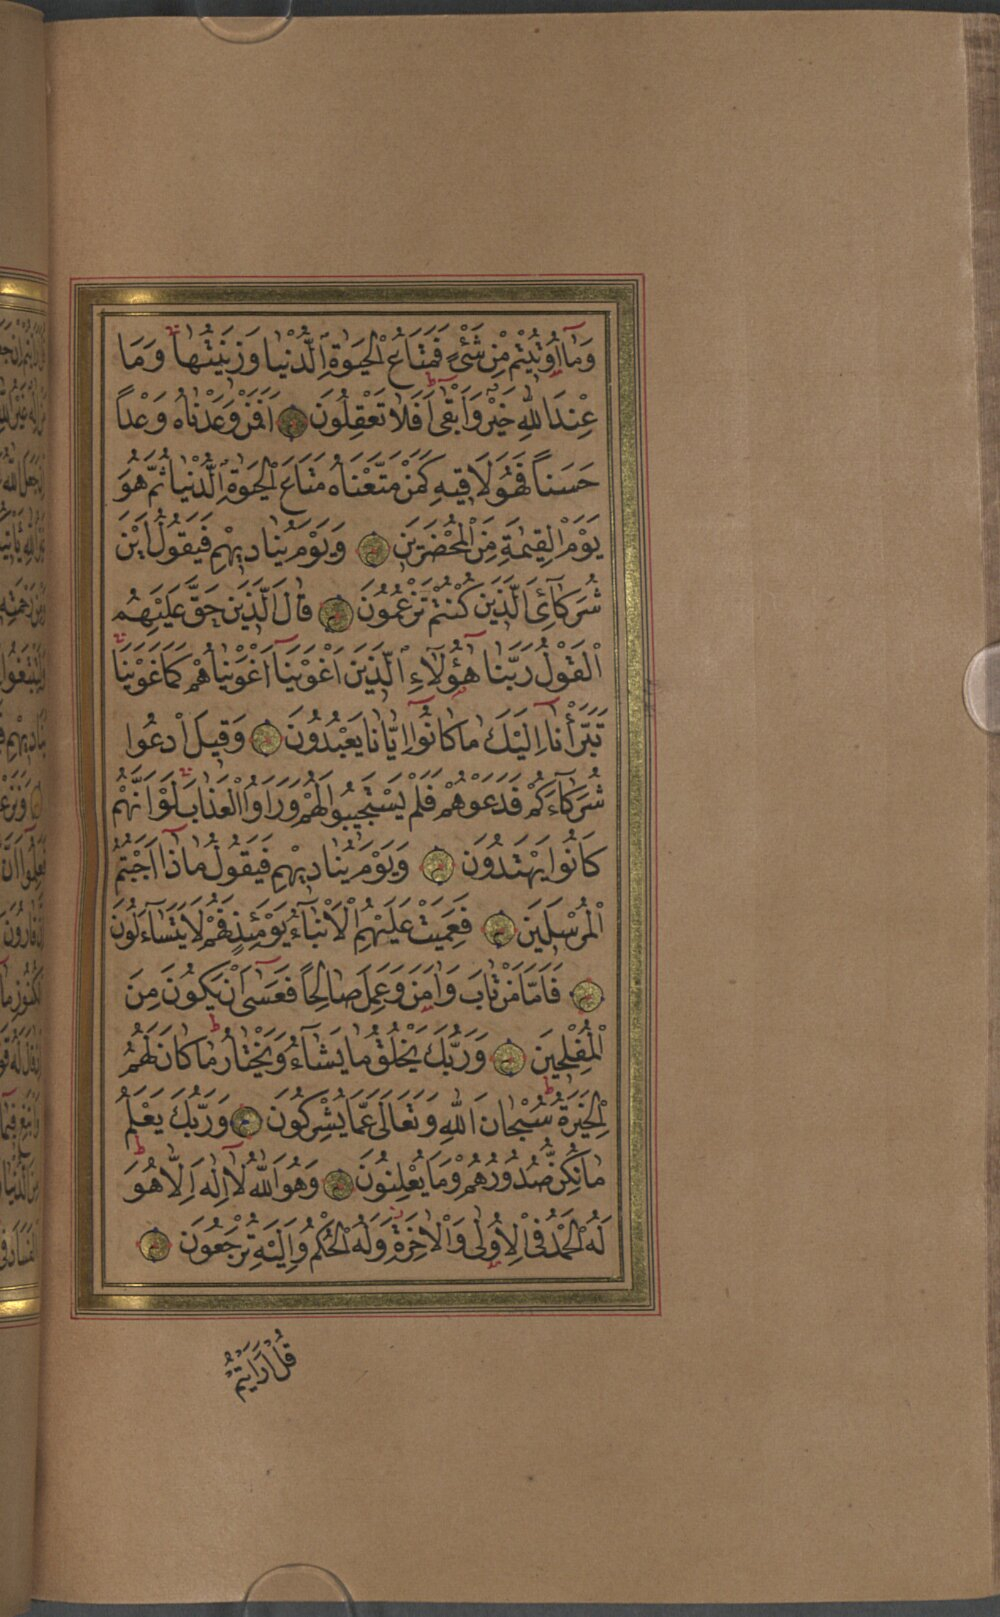 وَمَٓا اُو۫تٖيتُمْ مِنْ شَيْءٍ فَمَتَاعُ الْحَيٰوةِ الدُّنْيَا وَزٖينَتُهَاۚ وَمَا
عِنْدَ اللّٰهِ خَيْرٌ وَاَبْقٰىۜ اَفَلَا تَعْقِلُونَ اَفَمَنْ وَعَدْنَاهُ وَعْداً
حَسَناً فَهُوَ لَاقٖيهِ كَمَنْ مَتَّعْنَاهُ مَتَاعَ الْحَيٰوةِ الدُّنْيَا ثُمَّ هُوَ
يَوْمَ الْقِيٰمَةِ مِنَ الْمُحْضَرٖينَ وَيَوْمَ يُنَادٖيهِمْ فَيَقُولُ اَيْنَ
شُرَكَٓائِيَ الَّذٖينَ كُنْتُمْ تَزْعُمُونَ قَالَ الَّذٖينَ حَقَّ عَلَيْهِمُ
الْقَوْلُ رَبَّنَا هٰٓؤُ۬لَٓاءِ الَّذٖينَ اَغْوَيْنَاۚ اَغْوَيْنَاهُمْ كَمَا غَوَيْنَاۚ
تَبَرَّأْنَٓا اِلَيْكَ مَا كَانُٓوا اِيَّانَا يَعْبُدُونَ وَقٖيلَ ادْعُوا
شُرَكَٓاءَكُمْ فَدَعَوْهُمْ فَلَمْ يَسْتَجٖيبُوا لَهُمْ وَرَاَوُا الْعَذَابَۚ لَوْ اَنَّهُمْ
كَانُوا يَهْتَدُونَ وَيَوْمَ يُنَادٖيهِمْ فَيَقُولُ مَاذَٓا اَجَبْتُمُ
الْمُرْسَلٖينَ فَعَمِيَتْ عَلَيْهِمُ الْاَنْبَٓاءُ يَوْمَئِذٍ فَهُمْ لَا يَتَسَٓاءَلُونَ
فَاَمَّا مَنْ تَابَ وَاٰمَنَ وَعَمِلَ صَالِحاً فَعَسٰٓى اَنْ يَكُونَ مِنَ
الْمُفْلِحٖينَ وَرَبُّكَ يَخْلُقُ مَا يَشَٓاءُ وَيَخْتَارُۜ مَا كَانَ لَهُمُ
الْخِيَرَةُۜ سُبْحَانَ اللّٰهِ وَتَعَالٰى عَمَّا يُشْرِكُونَ وَرَبُّكَ يَعْلَمُ
مَا تُكِنُّ صُدُورُهُمْ وَمَا يُعْلِنُونَ وَهُوَ اللّٰهُ لَٓا اِلٰهَ اِلَّا هُوَۜ
لَهُ الْحَمْدُ فِي الْاُو۫لٰى وَالْاٰخِرَةِۘ وَلَهُ الْحُكْمُ وَاِلَيْهِ تُرْجَعُونَ
قُلْ اَرَاَيْتُمْ